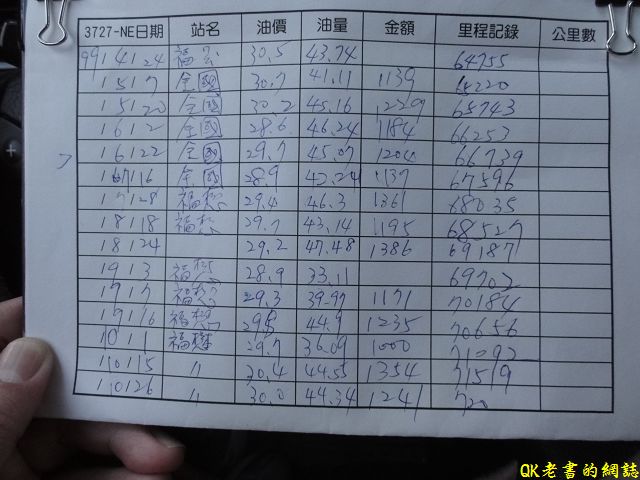 3727-NE日期 站名 油價 油量 金額 里程記錄 公里數
99/4/24 福 30.5 43.74 64755
/5/7 全國 30.7 41.11 1139 65220
/5/20 全國 30.2 45.16 1229 65743
/6/2 全國 28.6 46.24 1184 66253
/6/22 全國 29.7 45.07 1204 66739
/16 全國 28.9 1137 67596
/28 福懋 29.4 46.3 1361 68035
/8/18 福懋 29.7 43.14 1195 68527
/8/24 29.2 47.48 1386 69187
/9/3 福懋 28.9 33.11 69702
/9/7 福懋 29.3 39.97 1171 70184
/9/16 福懋 44.9 1235 70656
/10/1 福懋 29.7 36.09 1000 71092
/10/15 〃 30.4 44.55 1354 71519
/10/26 〃 30.0 44.34 1241 720
QK老書的網誌